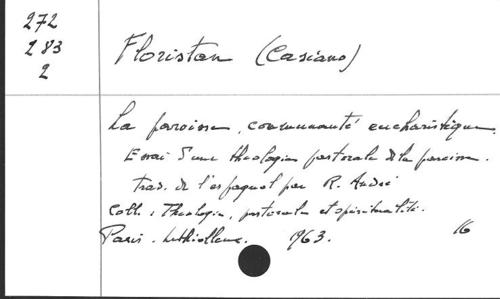 272
283
2
Floristan (Casiano)
La paroisse, communauté eucharistique.
Essai d'une théologie pastorale de la paroisse.
trad. de l'espagnol par R. André
Coll.: Théologie, pastorale et spiritualité.
Paris. Lethielleux. 1963. 16